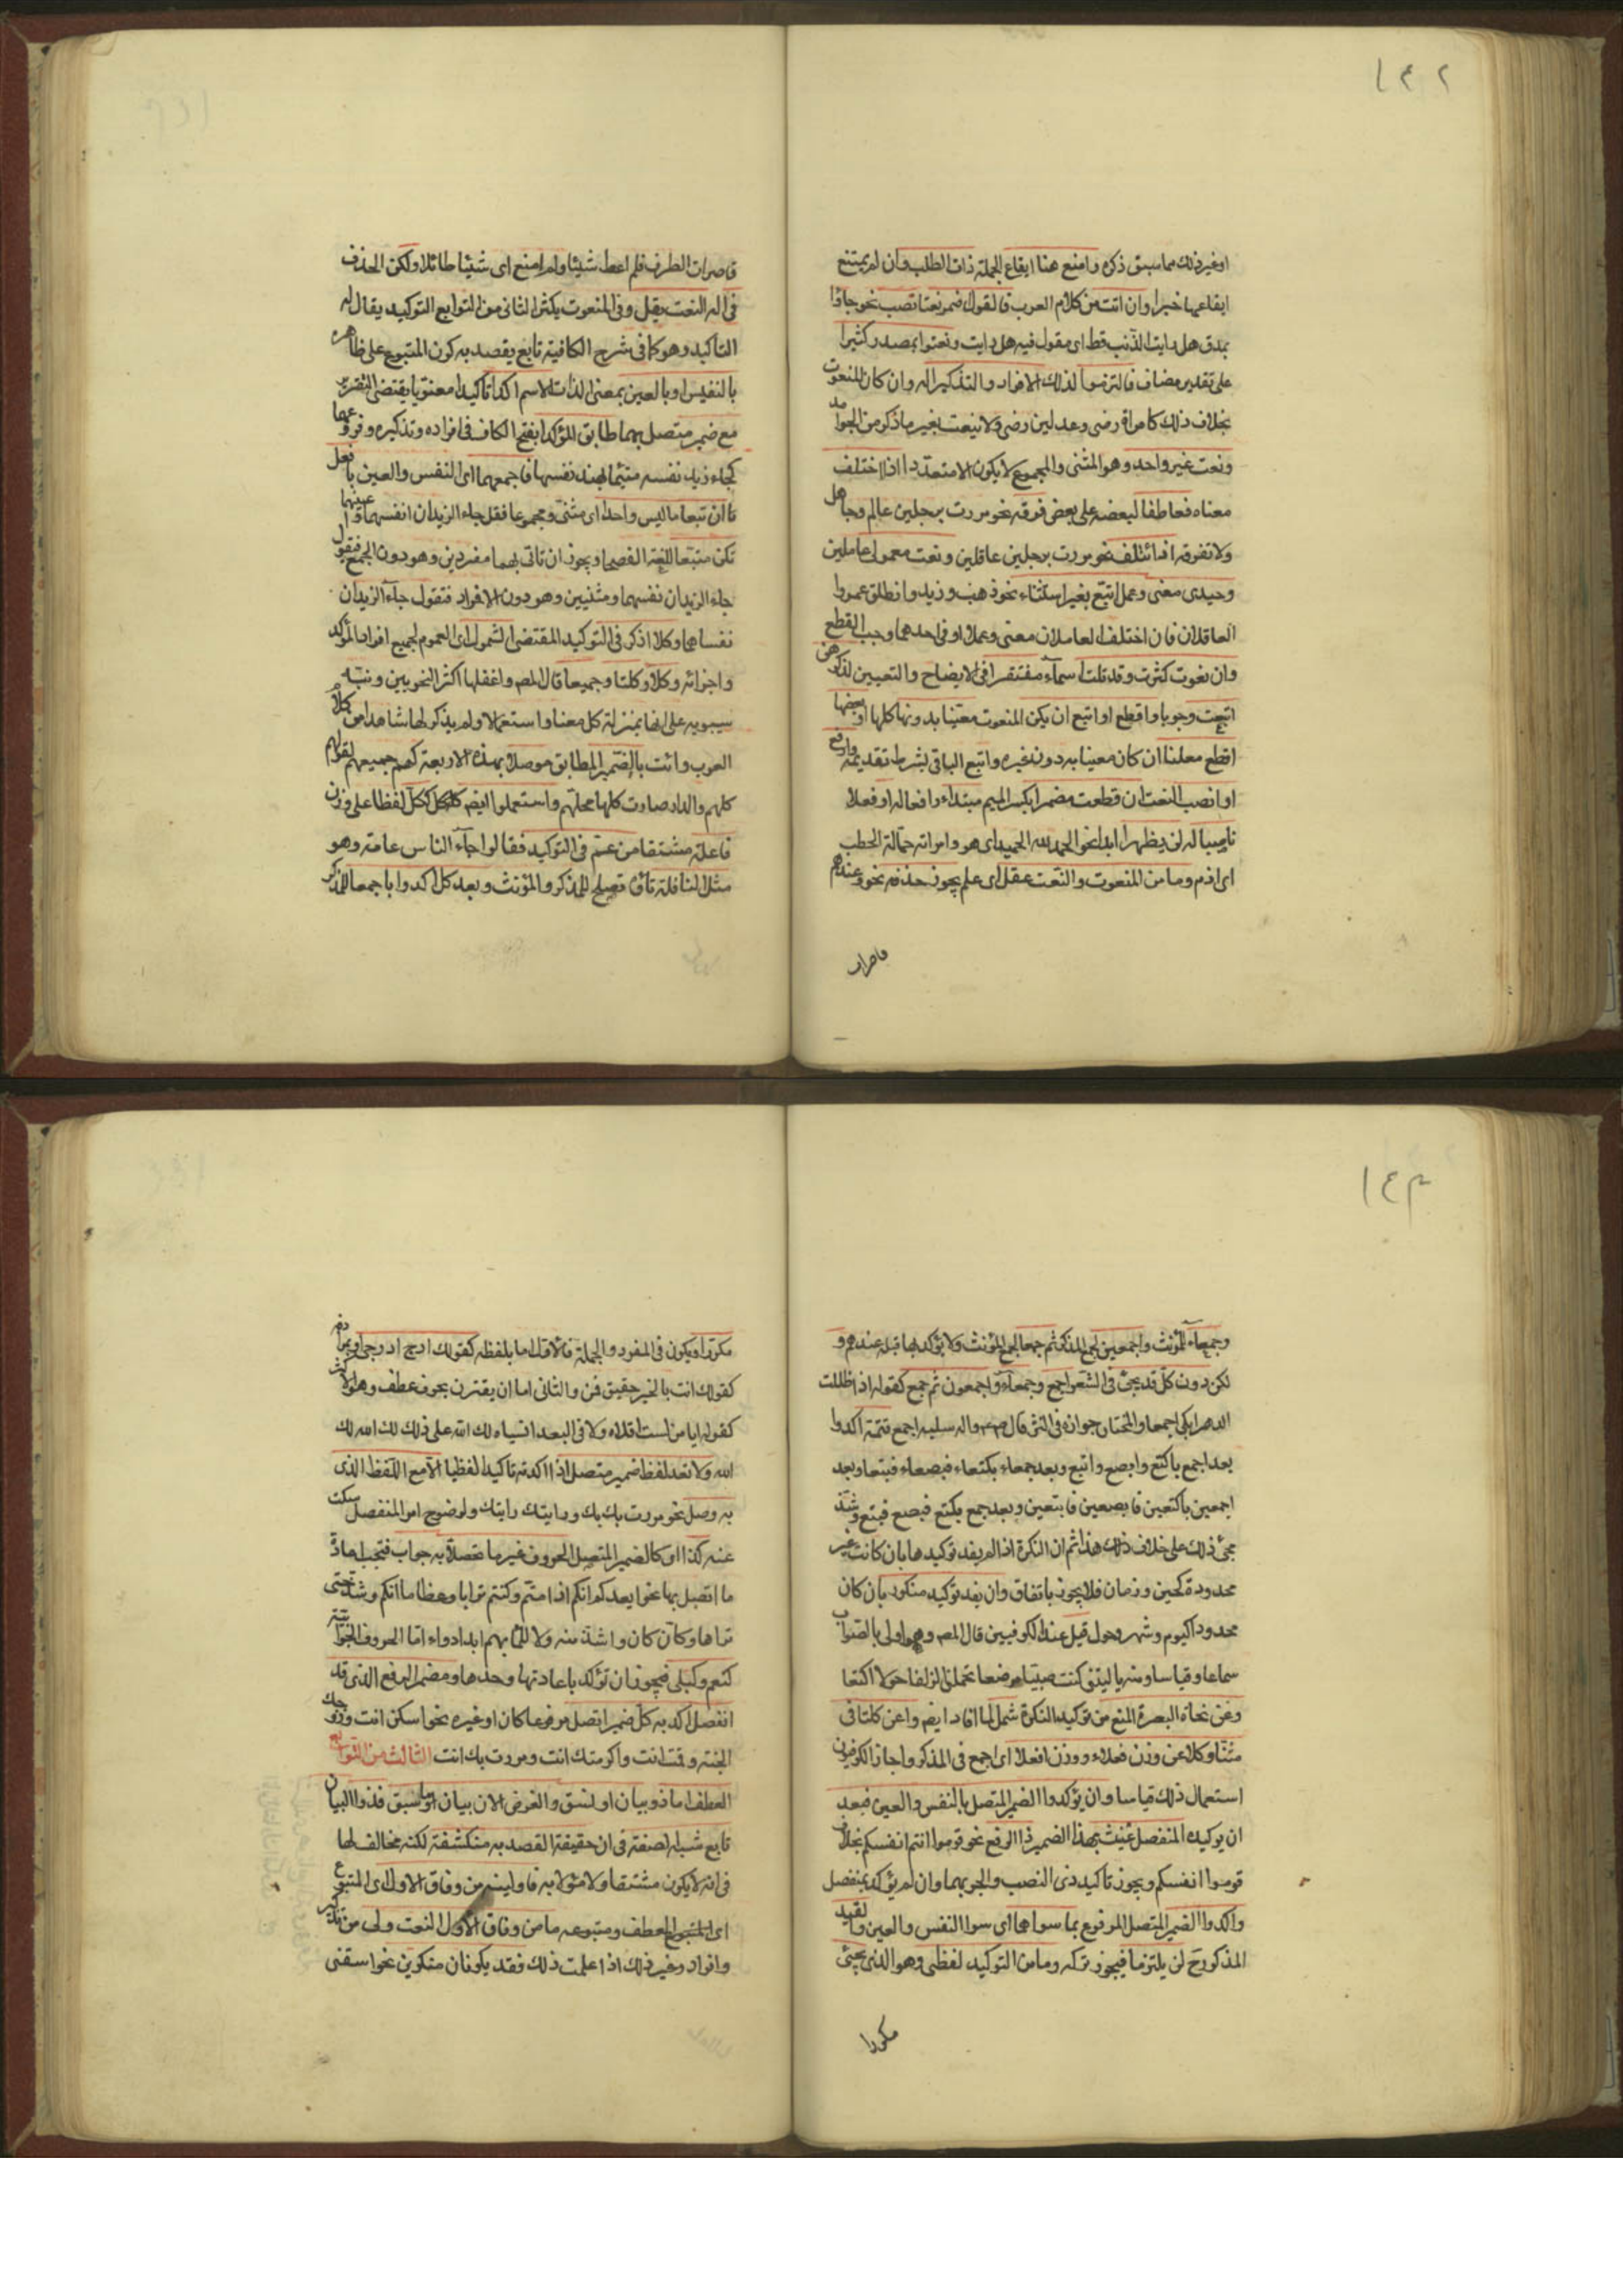 ١٤٢
او غير ذلك مما سبق ذكره وامنع هنا ايقاع الجملة ذات الطلب وان لم يمتنع
ايقاعها خبرا وان اتت من كلام العرب فالقول اضمر نعتا تصب نحو جاؤا
بمذق هل رايت الذئب قط اى مقول فيه هل رايت ونعتوا بمصدر كثيرا
على تقدير مضاف فالتزموا لذلك الافراد والتذكيرا له وان كان المنعوت
بخلاف ذلك كامراة رضى وعدلين رضى ولا ينعت بغير ما ذكر من الجوامد
ونعت غير واحد وهو المثنى والمجموع لا يكون الا متعددا اذا اختلف
معناه فعاطفا لبعضه على بعض فرقه نحو مررت برجلين عالم وجاهل
ولا تفرقه اذا ائتلف نحو مررت برجلين عاقلين ونعت معمولى عاملين
وحيدى معنى وعمل اتبع بغير استثناء نحو ذهب زيد وانطلق عمرو
العاقلان فان اختلف العاملان معنى وعملا او فى احدهما وجب القطع
وان نعوت كثرت وقد تلت اسماء مفتقرا فى الايضاح والتعيين لذكرهن
اتبعت وجوبا واقطع او اتبع ان يكن المنعوت معينا بدونها كلها او بعضها
اقطع معلنا ان كان معينا به دون غيره واتبع الباقى بشرط تقديمه وارفع
او انصب النعت ان قطعت مضمرا بكسر الميم مبتداء رافعا له او فعلا
ناصبا له لن يظهرا ابدا نحو الحمد لله الحميد اى هو وامراته حمالة الحطب
اى اذم وما من المنعوت والنعت عقل اى علم يجوز حذفه نحو وعندهم
قاصرات
قاصرات الطرف فلم اعط شيئا ولم امنع اى شيئا طائلا ولكن الحذف
فى اله النعت يقل وفى المنعوت يكثر الثانى من التوابع التوكيد يقال له
التاكيد وهو كما فى شرح الكافية تابع يقصد به كون المتبوع على ظاهره
بالنفس او بالعين بمعنى الذات الاسم اكدا تاكيدا معنويا يقتضى التقرير
مع ضمير متصل بهما طابق المؤكدا بفتح الكاف فى افراده وتذكيره وفروعهما
كجاء زيد نفسه متيما بهند نفسها فاجمعهما اى النفس والعين بافعل
ان تبعا ما ليس واحدا اى مثنى ومجموعا فقل جاء الزيدان انفسهما واعينهما
تكن متبعا للغة الفصحا ويجوز ان تاتى بهما مفردين وهو دون الجمع فتقول
جاء الزيدان نفسهما ومثنيين وهو دون الافراد فتقول جآء الزيدان
نفساهما وكلا اذكر فى التوكيد المقتضى الشمول اى العموم لجميع افراد المؤكد
واجزائه وكلا وكلتا وجميعا قال المص واغفلها اكثر النحويين ونبه
سيبويه على انها بمنزلة كل معنا واستعمالا ولم يذكر لها شاهدا من كلام
العرب وائت بالضمير المطابق موصلا بهذه الاربعة كهم جميعهم لقولهم
كلهم والدار صارت كلها محلهم واستعملوا ايض ككل لفظا على وزن
فاعلة مشتقا من عم فى التوكيد فقالوا جآء الناس عامة وهو
مثل النافلة تاؤه تصلح للمذكر والمؤنث وبعد كل اكدوا باجمعا للمذكر
١٤٣
وجمعاء للمؤنث واجمعين لجمع المذكر ثم جمعا لجمع المؤنث ولا يؤكد بها قبله عندهم و
لكن دون كل قد يجئ فى الشعر اجمع وجمعاء واجمعون ثم جمع كقوله اذا ظللت
الدهر ابكى اجمعا والمختار جوازه فى النثر قال ص م واله سلبه اجمع تتمة اكدوا
بعد اجمع باكتع وابصع وابتع وبعد جمعاء بكتعاء فبصعاء فبتعا وبعد
اجمعين باكتعين فابصعين فابتعين وبعد جمع بكتع فبصع فبتع وشذ
مجئ ذلك على خلاف ذلك هذا ثم ان النكرة اذا لم يفد توكيدها بان كانت غير
محدودة كحين وزمان فلا يجوز باتفاق وان يفد توكيد منكور بان كان
محدودا كيوم وشهر وحول قبل عند الكوفيين قال المص وهو اولى بالصواب
سماعا وقياسا ومنه يا ليتنى كنت صبيا مرضعا تحملنى الذلفا حولا اكتعا
وعن نحاة البصرة المنع من توكيد النكرة شمل لما افاد ايض واغن كلتا فى
مثنا وكلا عن وزن فعلاء ووزن افعلا اى اجمع فى المذكر واجاز الكوفيون
استعمال ذلك قياسا وان يؤكدوا الضمير المتصل بالنفس والعين فبعد
ان يوكيده المنفصل عنيت بهذا الضمير ذا الرفع نحو قوموا انتم انفسكم بخلاف
قوموا انفسكم ويجوز تاكيد ذى النصب والجر بهما وان لم يؤكد بمنفصل
واكدوا الضمير المتصل المرفوع بما سواهما اى سوا النفس والعين والقيد
المذكور ح لن يلتزما فيجوز تركه وما من التوكيد لفظى وهو الذى يجئ
مكررا
مكررا ويكون فى المفرد والجملة فالاول اما بلفظه كقولك ادرج ادرجى او بمرادفه
كقولك انت بالخير حقيق قمن والثانى اما ان يقترن بحرف عطف وهو الاكثر
كقوله ايا من لست اقلاه ولا فى البعد انساه لك الله على ذلك لك الله لك
الله ولا تعد لفظ ضمير متصل اذا اكدته تاكيدا لفظيا الا مع اللفظ الذى
به وصل نحو مررت بك بك ورايتك رايتك ولوضوح امر المنفصل سكت
عنه كذا اى كالضمير المتصل الحروف غير ما تحصلا به جواب فيجب اعادة
ما اتصل بها نحو ايعدكم انكم اذا متم وكنتم ترابا وعظاما انكم وشذ حتى
تراها وكان كان واشذ منه ولا للما بهم ابدا دواء اما الحروف الجوابية
كنعم وكبلى فيجوز ان تؤكد باعادتها وحدها ومضمر الرفع الذى قد
انفصل اكد به كل ضمير اتصل مرفوعا كان او غيره نحو اسكن انت وزوجك
الجنة وقمت انت واكرمتك انت ومررت بك انت الثالث من التوابع
العطف اما ذو بيان او نسق والغرض الان بيان ما سبق فذو البيان
تابع شبه الصفة فى ان حقيقة القصد به منكشفة لكنه مخالف لها
فى انه لا يكون مشتقا ولا مؤولا به فاولينه من وفاق الاول اى المتبوع
اى العطف ومتبوعه ما من وفاق الاول النعت ولى من تذكير
وافراد وغير ذلك اذا علمت ذلك فقد يكونان منكرين نحو اسقنى